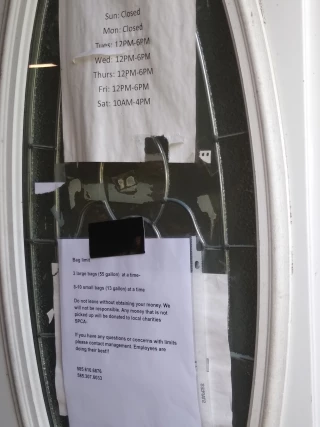 Sun: Closed
Mon: Closed
Tues: 12PM-6PM
Wed: 12PM-6PM
Thurs: 12PM-6PM
Fri: 12PM-6PM
Sat: 10AM-4PM
Bag limit
2 large bags (55 gallon) at a time-
8-10 small bags (13 gallon) at a time
Do not leave without obtaining your money. We
will not be responsible. Any money that is not
picked up will be donated to local charities
SPCA-
If you have any questions or concerns with limits
please contact management. Employees are
doing their best!!